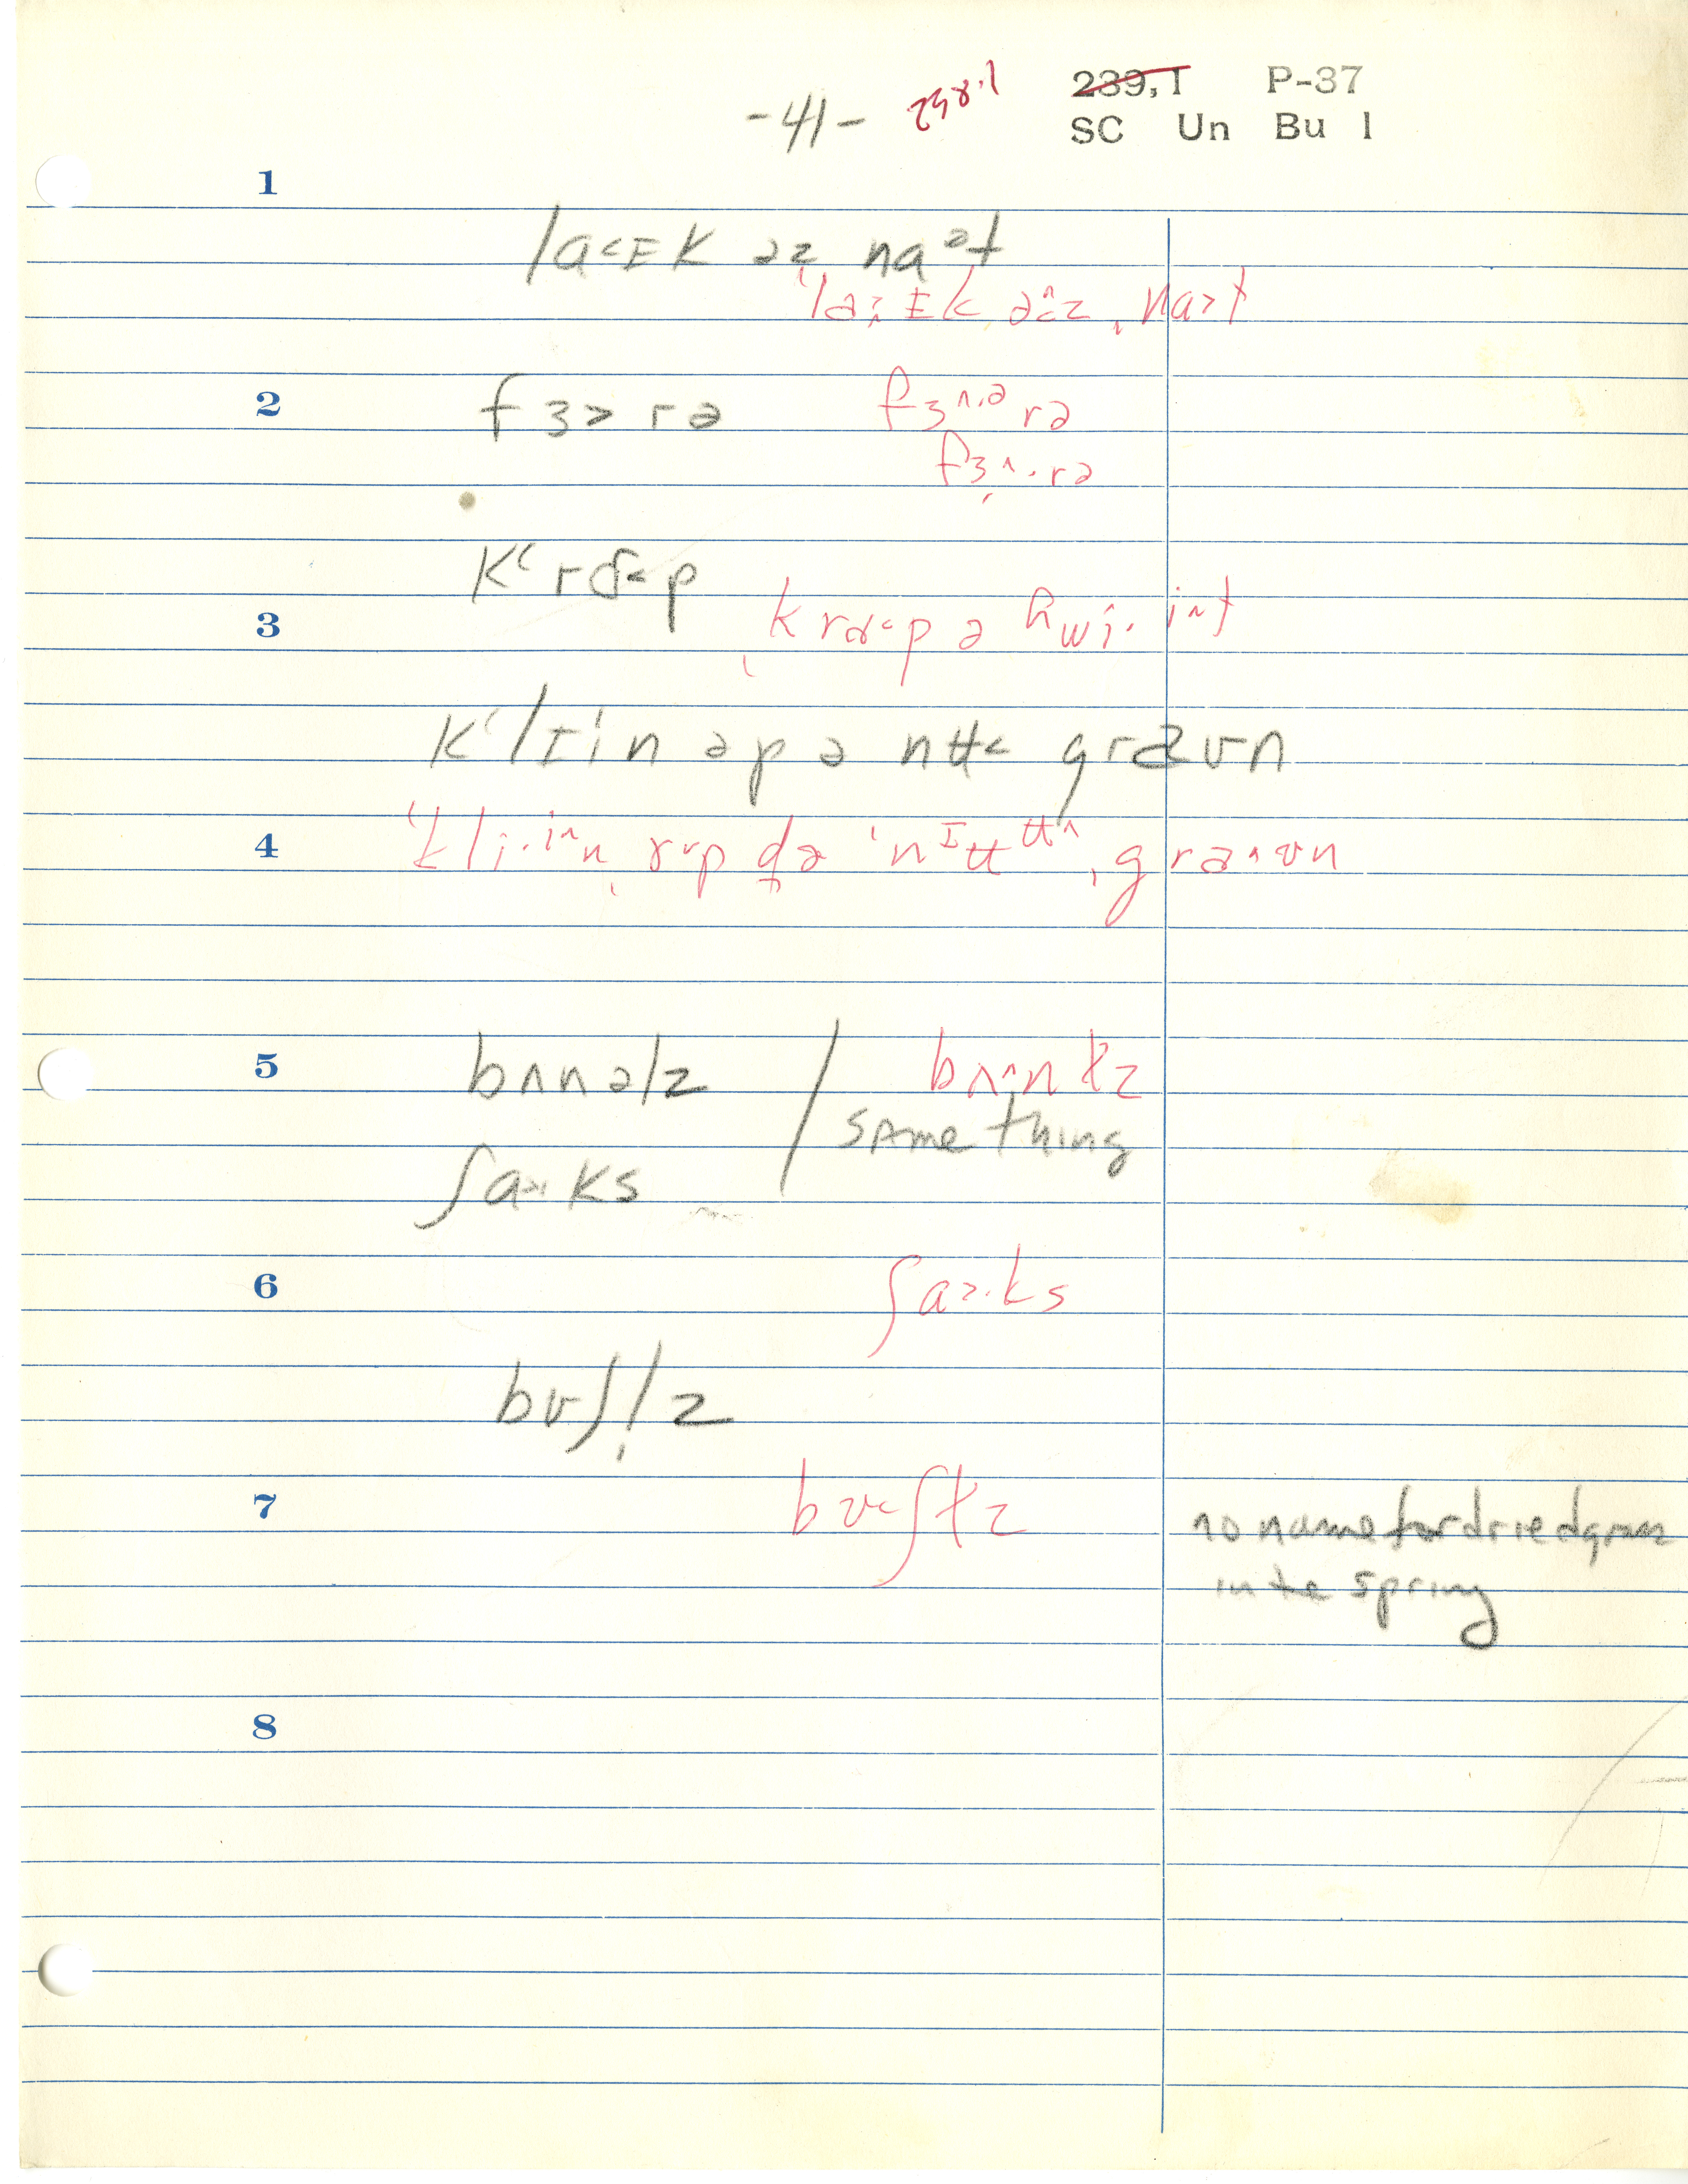 -41- 238.1 239,1 P-37
SC Un Bu 1
1
la˂ɪK əz naᵊt
ˈla˃ɪk əˆz ˌna˃t
2 fɜ˃rə fɜ^.ᵊrə
fɜ^.rə
Kʻrɑ˂p
3 ˌkrɑ˂p ə hwi.iˆt
Kʻlɪin əp ə nʉ˂ graʊn
4 ˈkli.iˆn ˌɤ˅p də ˈnɪʉʉ^ ˌgra^ʊn
5 bʌnəlz / bʌ^n ɫz
same thing
ʃa˃.ks
6 ʃa˃.ks
bʊʃl̩z
7 bʊ˂ʃɫz no name for dried grass
in the spring
8